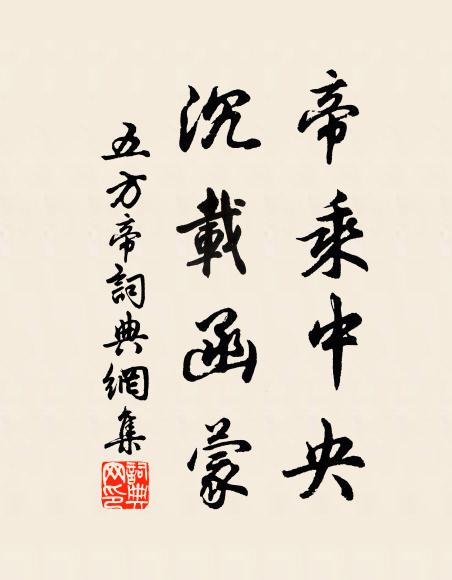 帝乘中央
沉載函蒙
五方帝詞典網集
詞典网印